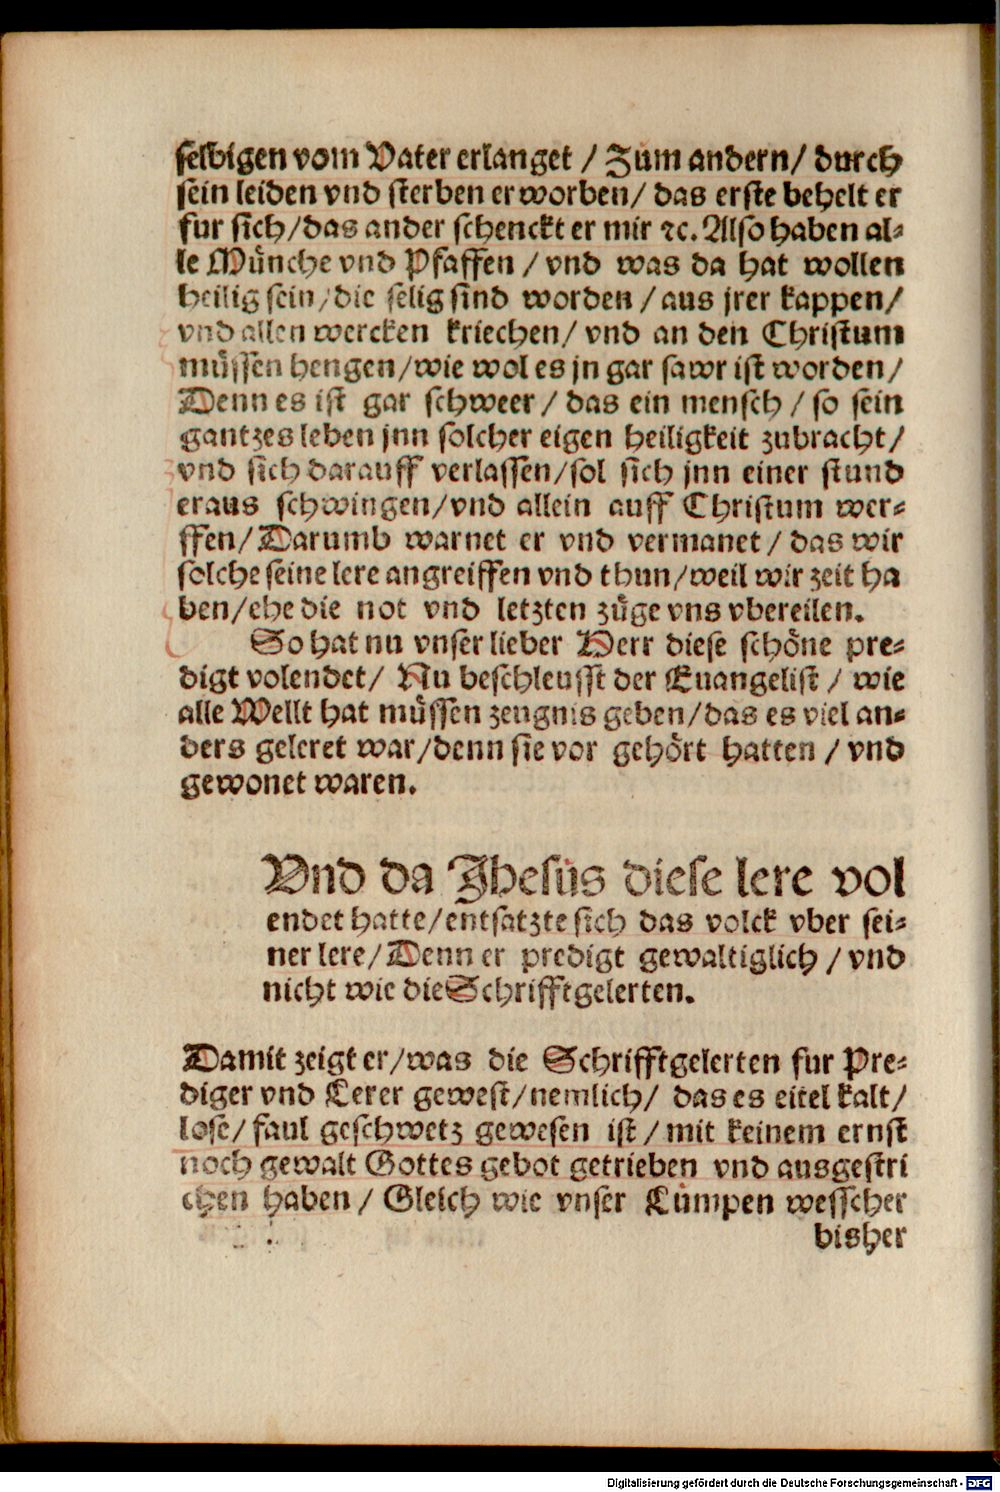 selbigen vom Vater erlanget / Zum andern / durch
sein leiden vnd sterben erworben / das erste behelt er
fur sich / das ander schenckt er mir ꝛc. Also haben al⸗
le Muͤnche vnd Pfaffen / vnd was da hat wollen
heilig sein / die selig sind worden / aus jrer kappen /
vnd allen wercken kriechen / vnd an den Christum
muͤssen hengen / wie wol es jn gar sawr ist worden /
Denn es ist gar schweer / das ein mensch / so sein
gantzes leben jnn solcher eigen heiligkeit zubracht /
vnd sich darauff verlassen / sol sich jnn einer stund
eraus schwingen / vnd allein auff Christum wer⸗
ffen / Darumb warnet er vnd vermanet / das wir
solche seine lere angreiffen vnd thun / weil wir zeit ha
ben / ehe die not vnd letzten zuͤge vns vbereilen.
So hat nu vnser lieber Herr diese schoͤne pre⸗
digt volendet / Nu beschleusst der Euangelist / wie
alle Wellt hat muͤssen zeugnis geben / das es viel an⸗
ders geleret war / denn sie vor gehoͤrt hatten / vnd
gewonet waren.
Vnd da Jhesus diese lere vol
endet hatte / entsatzte sich das volck vber sei⸗
ner lere / Denn er predigt gewaltiglich / vnd
nicht wie die Schrifftgelerten.
Damit zeigt er / was die Schrifftgelerten fur Pre⸗
diger vnd Lerer gewest / nemlich / das es eitel kalt /
lose / faul geschwetz gewesen ist / mit keinem ernst
noch gewalt Gottes gebot getrieben vnd ausgestri
chen haben / Gleich wie vnser Lumpen wesscher
bisher
Digitalisierung gefördert durch die Deutsche Forschungsgemeinschaft - DFG